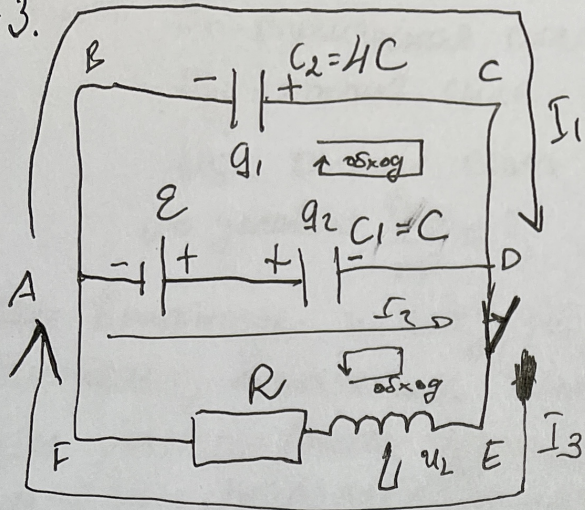 3.
B - + C₂=4C C
I₁
q₁ обход
ε q₂ C₁=C
- + + - D
A
I₂
обход
R
F L U_L E I₃